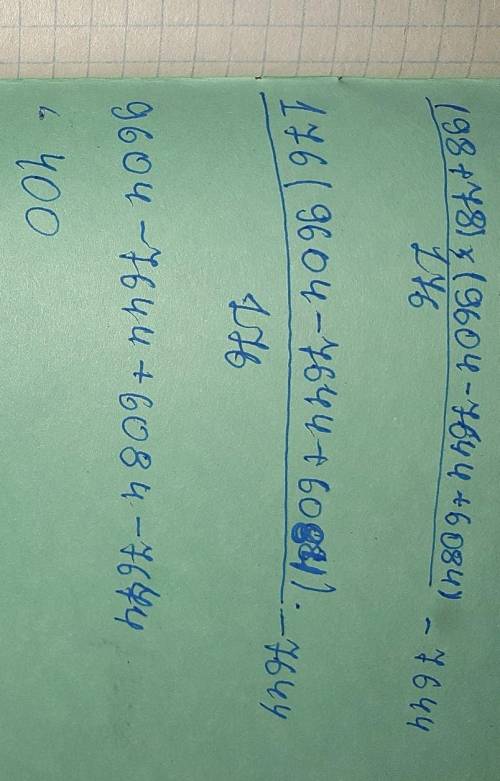 (98+78)x(9604-7644+6084)
176
-7644
176(9604-7644+6084)
176
-7644
9604-7644+6084-7644
400